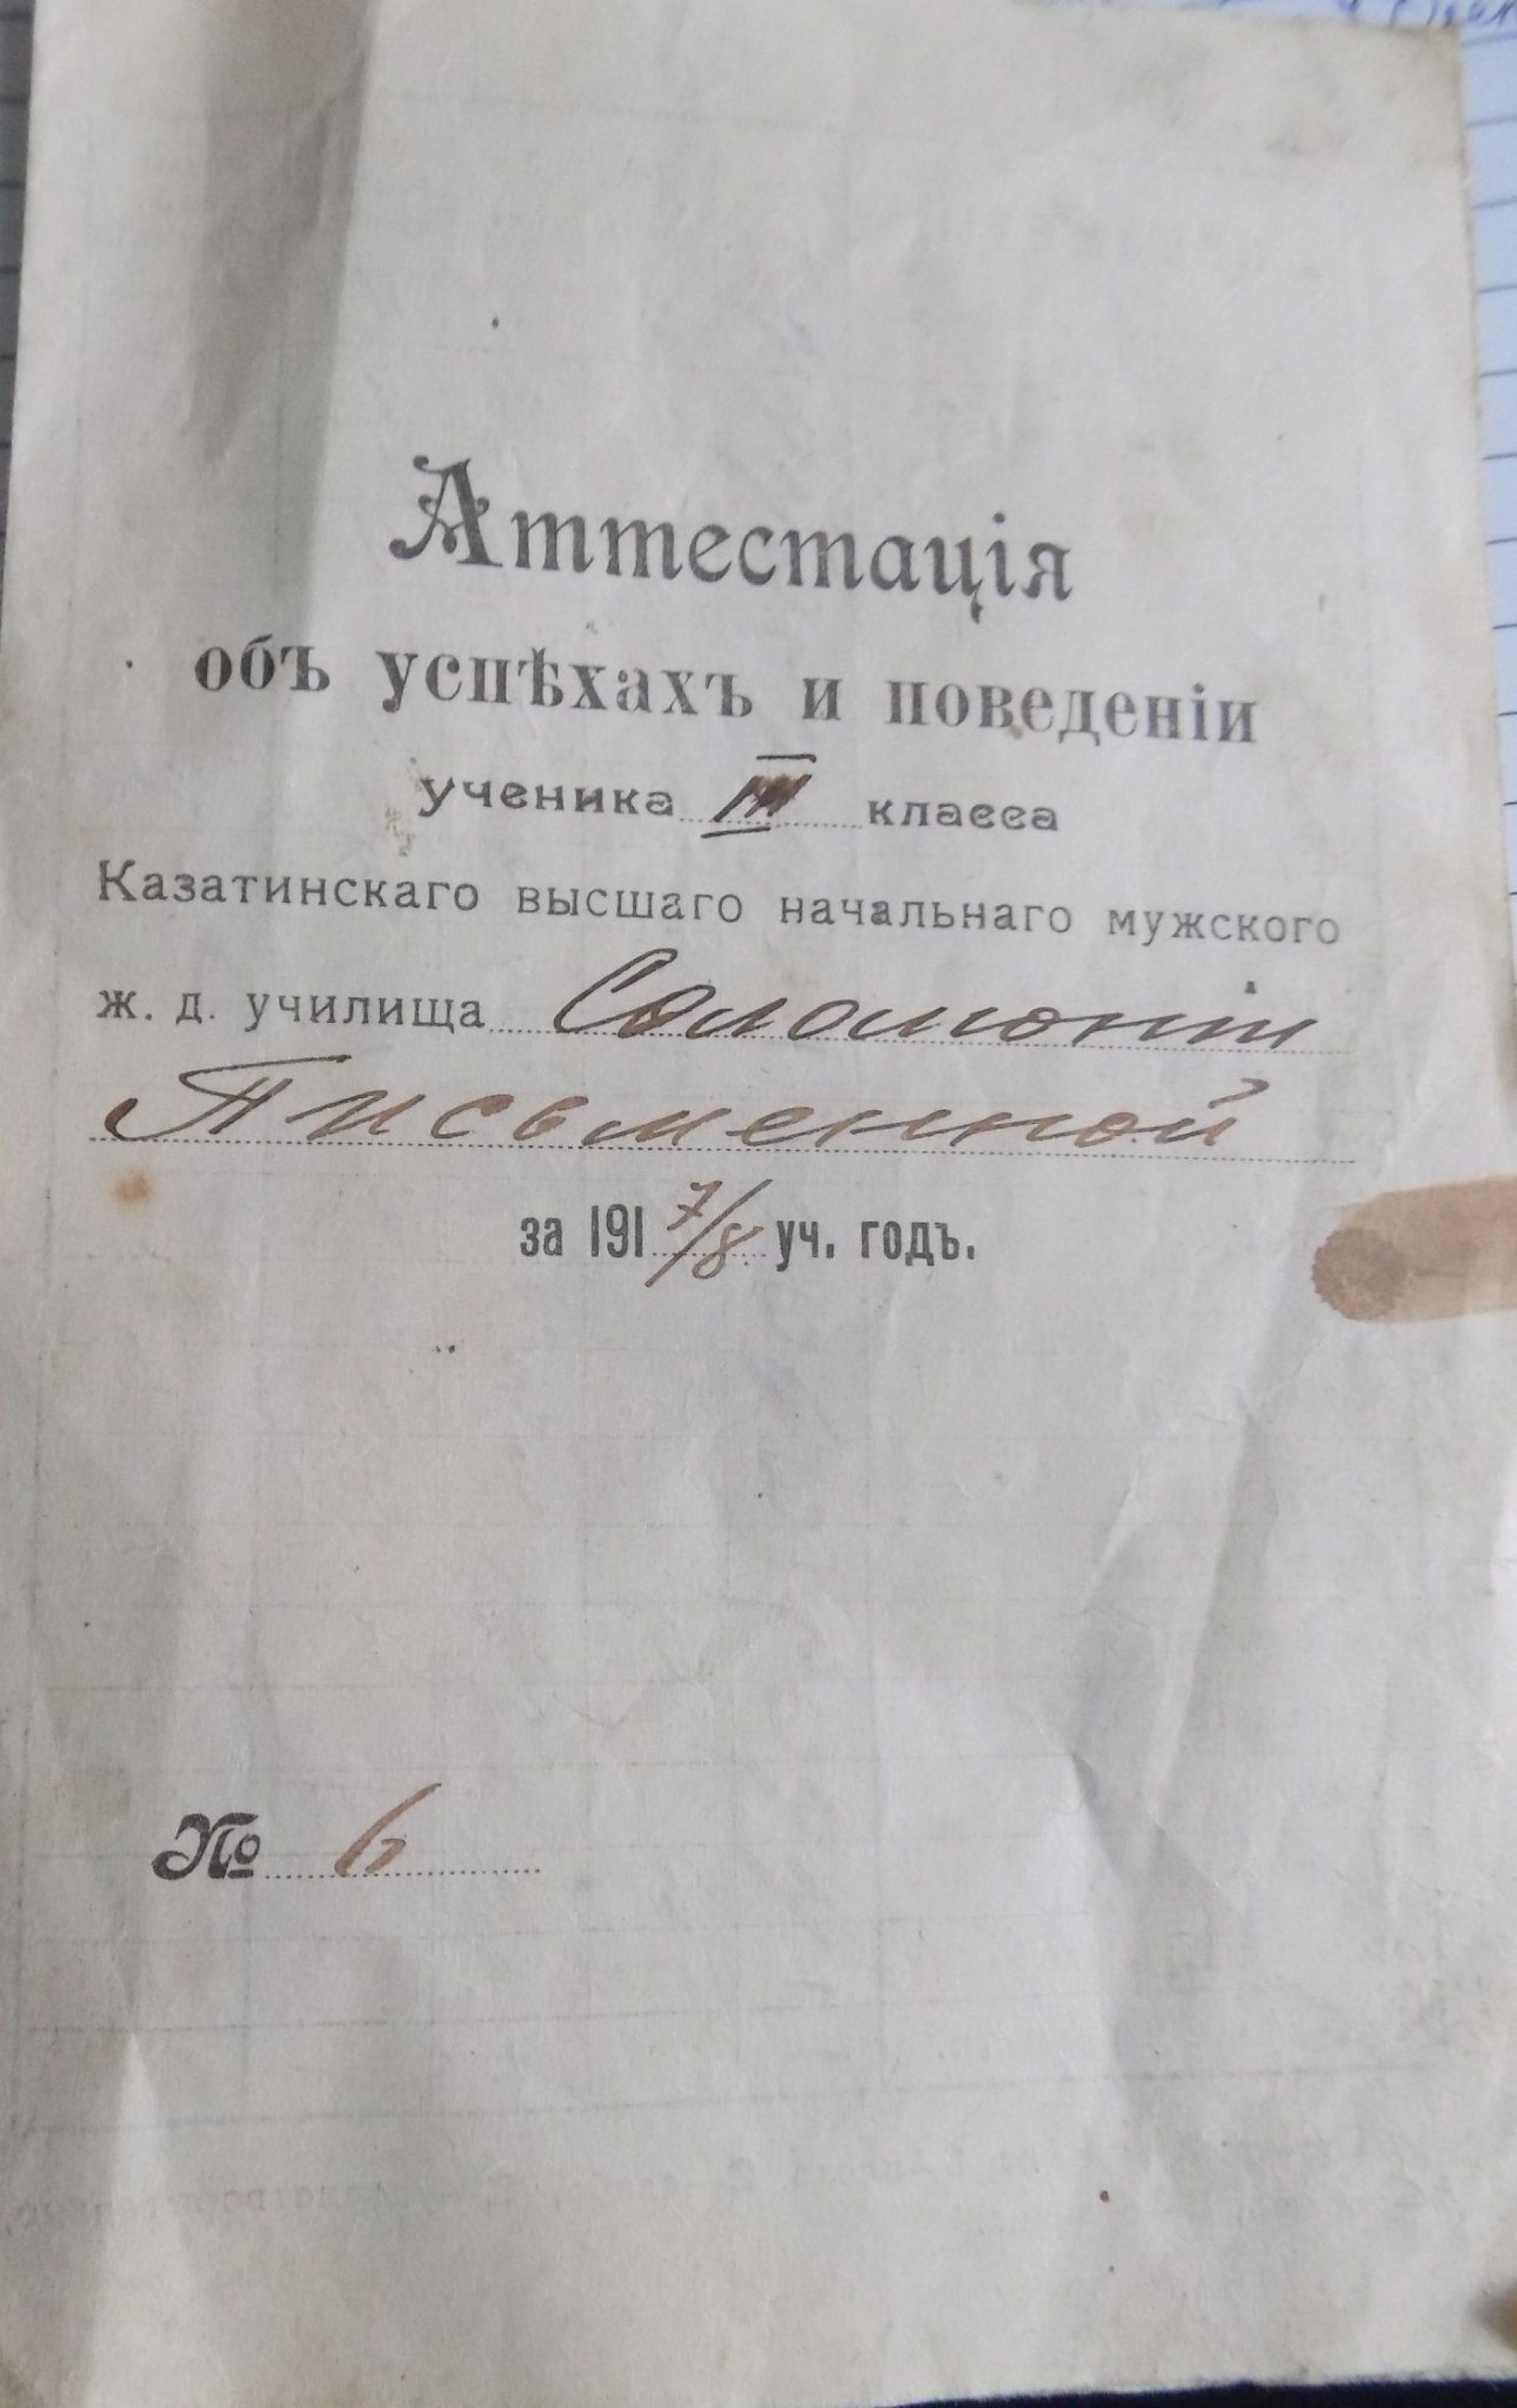 Аттестація
объ успѣхахъ и поведеніи
ученика III класса
Казатинскаго высшаго начальнаго мужского
ж. д. училища
Письменной
за 1917/8 уч. годъ.
№ 6